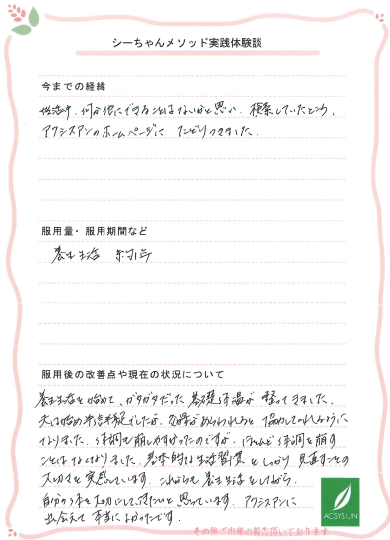 シーちゃんメソッド実践体験談
今までの経緯
妊活中、何か他にできることはないかと思い、検索していたところ、
アクシスアンのホームページに たどりつきました。
服用量・服用期間など
養生生活
服用後の改善点や現在の状況について
養生生活を始めて、ガタガタだった基礎体温が整ってきました。
夫は始め半信半疑でしたが、効果があらわれると協力してくれるように
なりました。体調も崩しやすかったのですが、ほとんど体調を崩す
ことはなくなりました。基本的な生活習慣をしっかり見直すことの
大切さを実感しています。これからも養生生活をしながら、
自分の体を大切にして行きたいと思っています。アクシスアンに
出会えて本当によかったです。
その後ご出産の報告頂いております
ACSYSUN